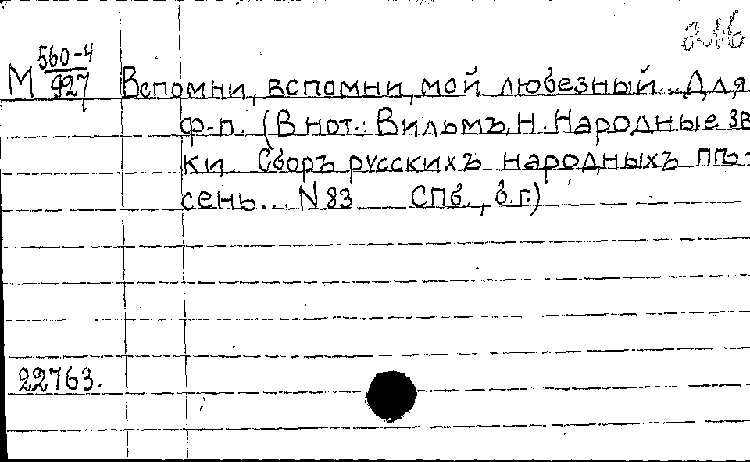 216
М 560-4/927 Вспомни, вспомни, мой любезный... Для
ф-п. (В нот.: Вильмъ, Н. Народные зв
ки Сборъ русскихъ народныхъ пѣ-
сень... N 83 СПб., б.г.)
22763.